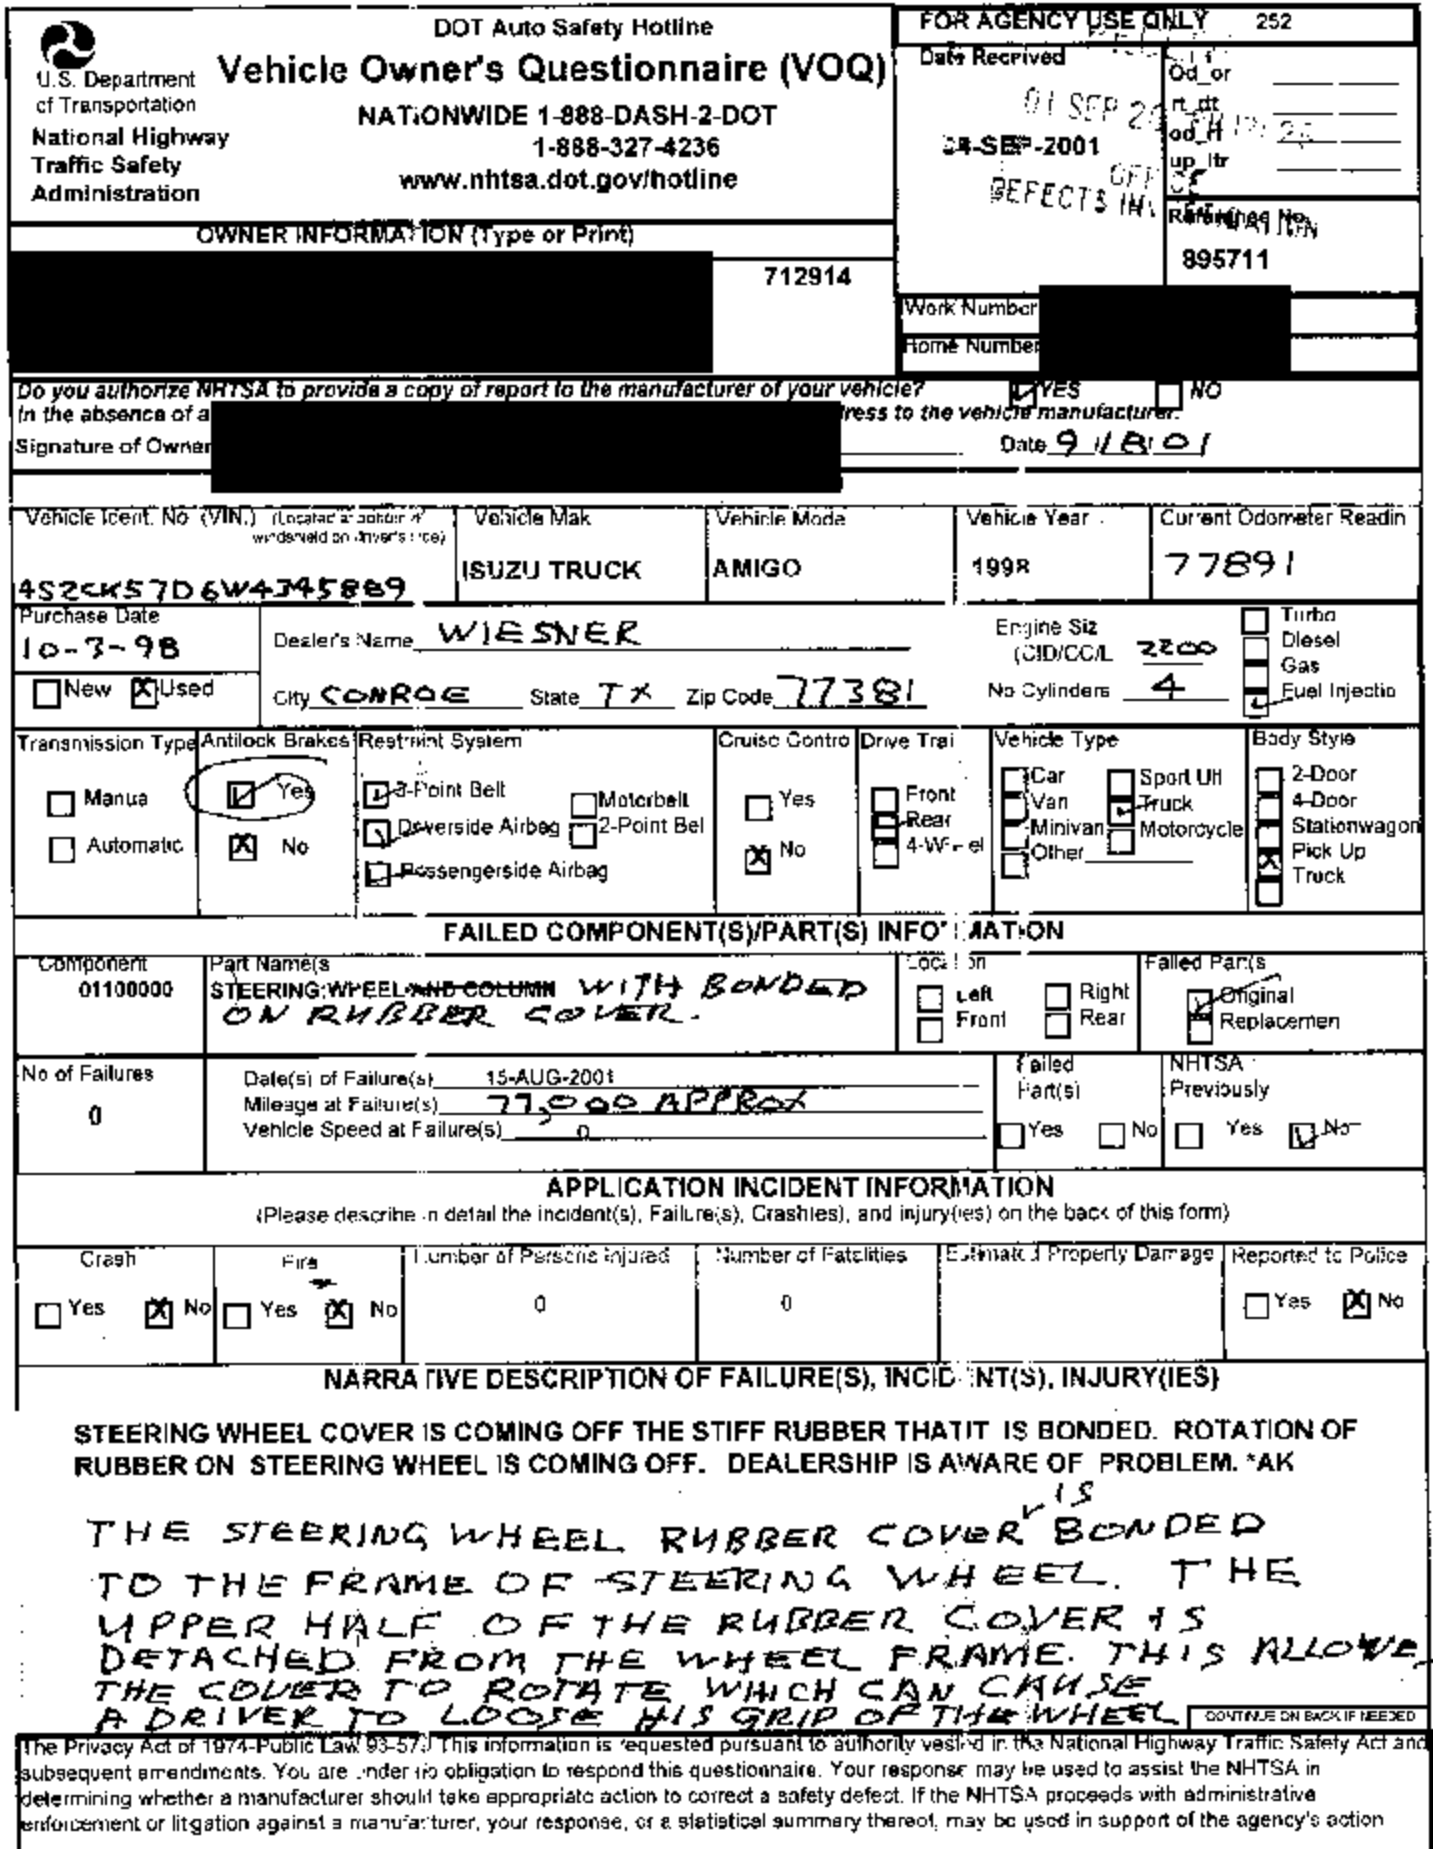 DOT Auto Safety Hotline
Vehicle Owner's Questionnaire (VOQ)
NATIONWIDE 1-888-DASH-2-DOT
1-888-327-4236
www.nhtsa.dot.gov/hotline
U.S. Department
of Transportation
National Highway
Traffic Safety
Administration
FOR AGENCY USE ONLY 252
Date Received
SEP-2001
Od_or
rt_dt
od_rf
up_ltr
01 SEP
DEFECTS
Reference No.
895711
OWNER INFORMATION (Type or Print)
712914
Work Number
Home Number
Do you authorize NHTSA to provide a copy of report to the manufacturer of your vehicle? YES NO
In the absence of a
ress to the vehicle manufacturer.
Signature of Owner
Date 9/18/01
Vehicle Ident. No. (VIN.) (Located at bottom of
windshield on driver's side)
4S2CK57D6W4345889
Vehicle Mak
ISUZU TRUCK
Vehicle Mode
AMIGO
Vehicle Year
1998
Current Odometer Readin
77891
Purchase Date
10-3-98
New Used
Dealer's Name WIESNER
City CONROE State TX Zip Code 77381
Engine Siz
(CID/CC/L 2200
No Cylinders 4
Turbo
Diesel
Gas
Fuel Injectio
Transmission Type
Manua
Automatic
Antilock Brakes
Yes
No
Restraint System
3-Point Belt
Driverside Airbag
Passengerside Airbag
Motorbelt
2-Point Bel
Cruise Contro
Yes
No
Drive Trai
Front
Rear
4-Wheel
Vehicle Type
Car
Van
Minivan
Other
Sport Uti
Truck
Motorcycle
Body Style
2-Door
4-Door
Stationwagon
Pick Up
Truck
FAILED COMPONENT(S)/PART(S) INFORMATION
Component
01100000
Part Name(s
STEERING:WHEEL AND COLUMN WITH BONDED
ON RUBBER COVER.
Location
Left Right
Front Rear
Failed Part(s
Original
Replacemen
No of Failures
0
Date(s) of Failure(s) 15-AUG-2001
Mileage at Failure(s) 77,000 APPROX
Vehicle Speed at Failure(s) 0
Failed
Part(s)
Yes No
NHTSA
Previously
Yes No
APPLICATION INCIDENT INFORMATION
(Please describe in detail the incident(s), Failure(s), Crash(es), and injury(ies) on the back of this form)
Crash
Yes No
Fire
Yes No
Number of Persons Injured
0
Number of Fatalities
0
Estimated Property Damage
Reported to Police
Yes No
NARRATIVE DESCRIPTION OF FAILURE(S), INCIDENT(S), INJURY(IES)
STEERING WHEEL COVER IS COMING OFF THE STIFF RUBBER THATIT IS BONDED. ROTATION OF
RUBBER ON STEERING WHEEL IS COMING OFF. DEALERSHIP IS AWARE OF PROBLEM. *AK
THE STEERING WHEEL RUBBER COVER IS BONDED
TO THE FRAME OF STEERING WHEEL. THE
UPPER HALF OF THE RUBBER COVER IS
DETACHED FROM THE WHEEL FRAME. THIS ALLOWE
THE COVER TO ROTATE WHICH CAN CAUSE
A DRIVER TO LOOSE HIS GRIP OF THE WHEEL
CONTINUE ON BACK IF NEEDED
The Privacy Act of 1974-Public Law 93-579 This information is requested pursuant to authority vested in the National Highway Traffic Safety Act and
subsequent amendments. You are under no obligation to respond this questionnaire. Your response may be used to assist the NHTSA in
determining whether a manufacturer should take appropriate action to correct a safety defect. If the NHTSA proceeds with administrative
enforcement or litigation against a manufacturer, your response, or a statistical summary thereof, may be used in support of the agency's action